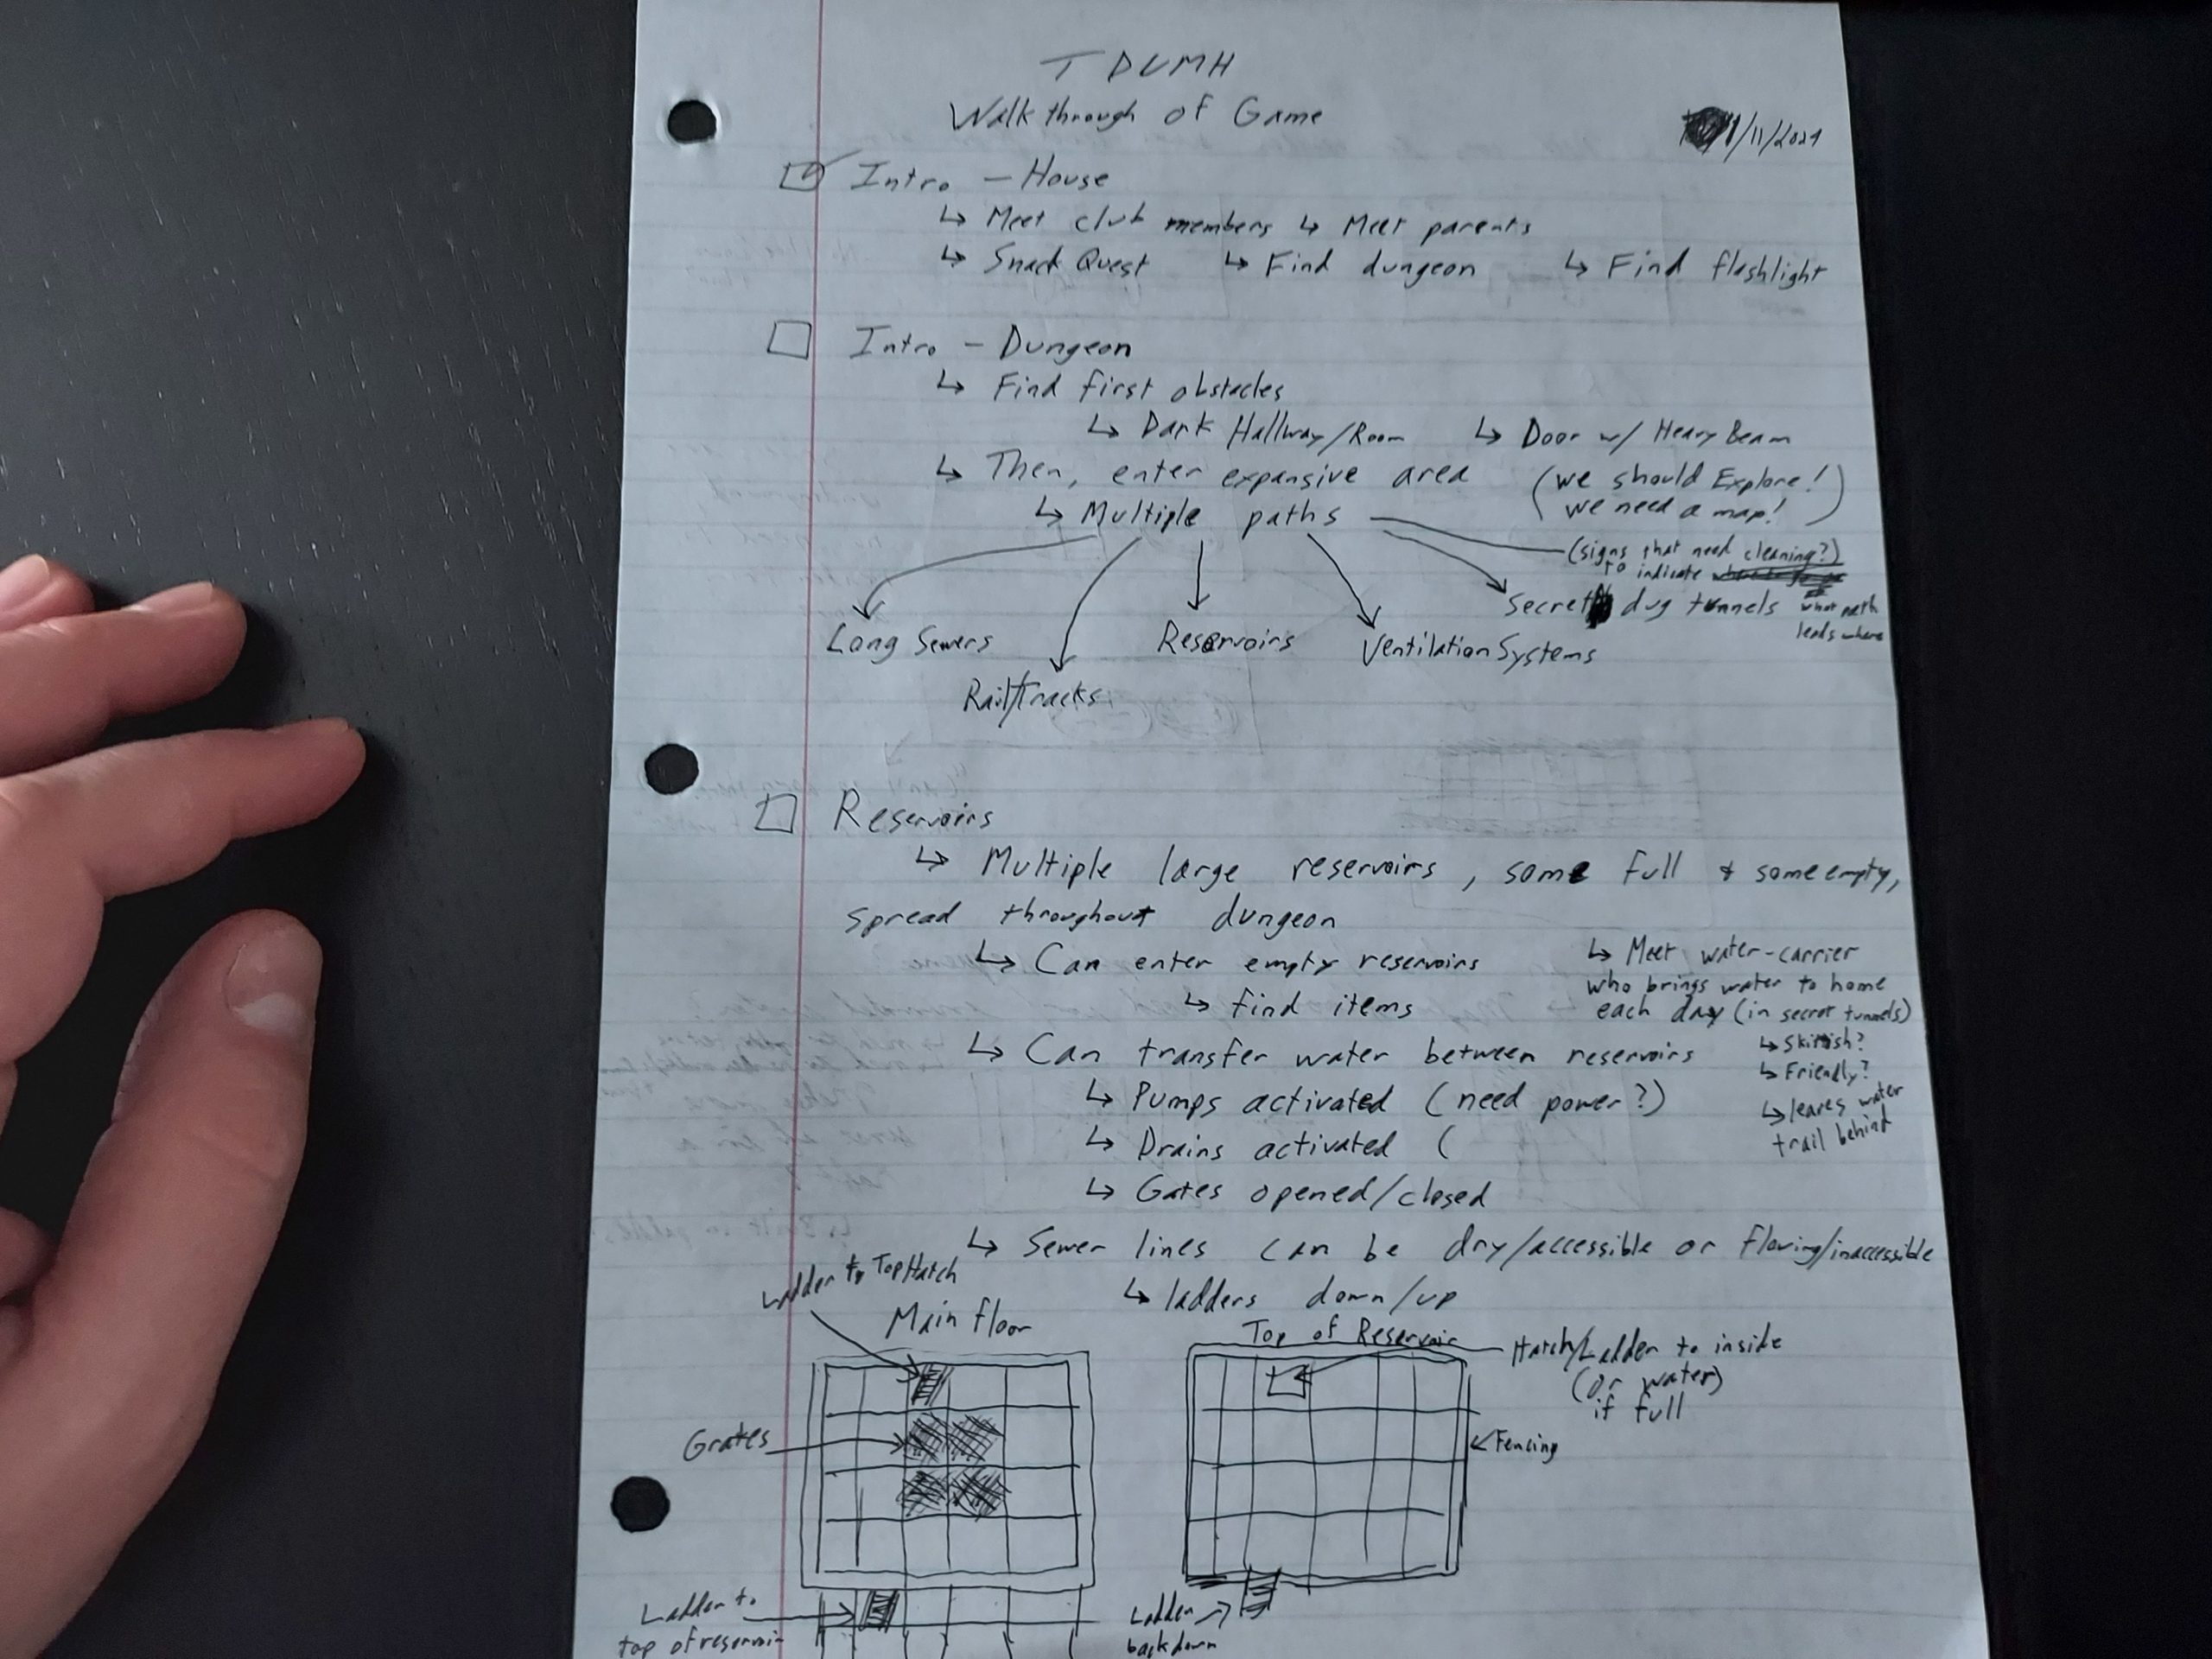 TDUMH
Walkthrough of Game
1/11/2021
Intro - House
↳ Meet club members ↳ Meet parents
↳ Snack Quest ↳ Find dungeon ↳ Find flashlight
Intro - Dungeon
↳ Find first obstacles
↳ Dark Hallway/Room ↳ Door w/ Heavy Beam
↳ Then, enter expansive area (we should Explore!
we need a map!)
↳ Multiple paths
(signs that need cleaning?)
to indicate
what path
leads where
Secret dug tunnels
Long Sewers
Reservoirs
Ventilation Systems
Rail/Tracks
Reservoirs
↳ Multiple large reservoirs, some full & some empty,
spread throughout dungeon
↳ Can enter empty reservoirs
↳ find items
↳ Meet water-carrier
who brings water to home
each day (in secret tunnels)
↳ Skittish?
↳ Friendly?
↳ leaves water
trail behind
↳ Can transfer water between reservoirs
↳ Pumps activated (need power?)
↳ Drains activated (
↳ Gates opened/closed
↳ Sewer lines can be dry/accessible or flowing/inaccessible
↳ ladders down/up
Ladder to Top Hatch
Main floor
Grates
Ladder to
top of reservoir
Top of Reservoir
Hatch/Ladder to inside
(or water)
if full
Fencing
Ladder
back down